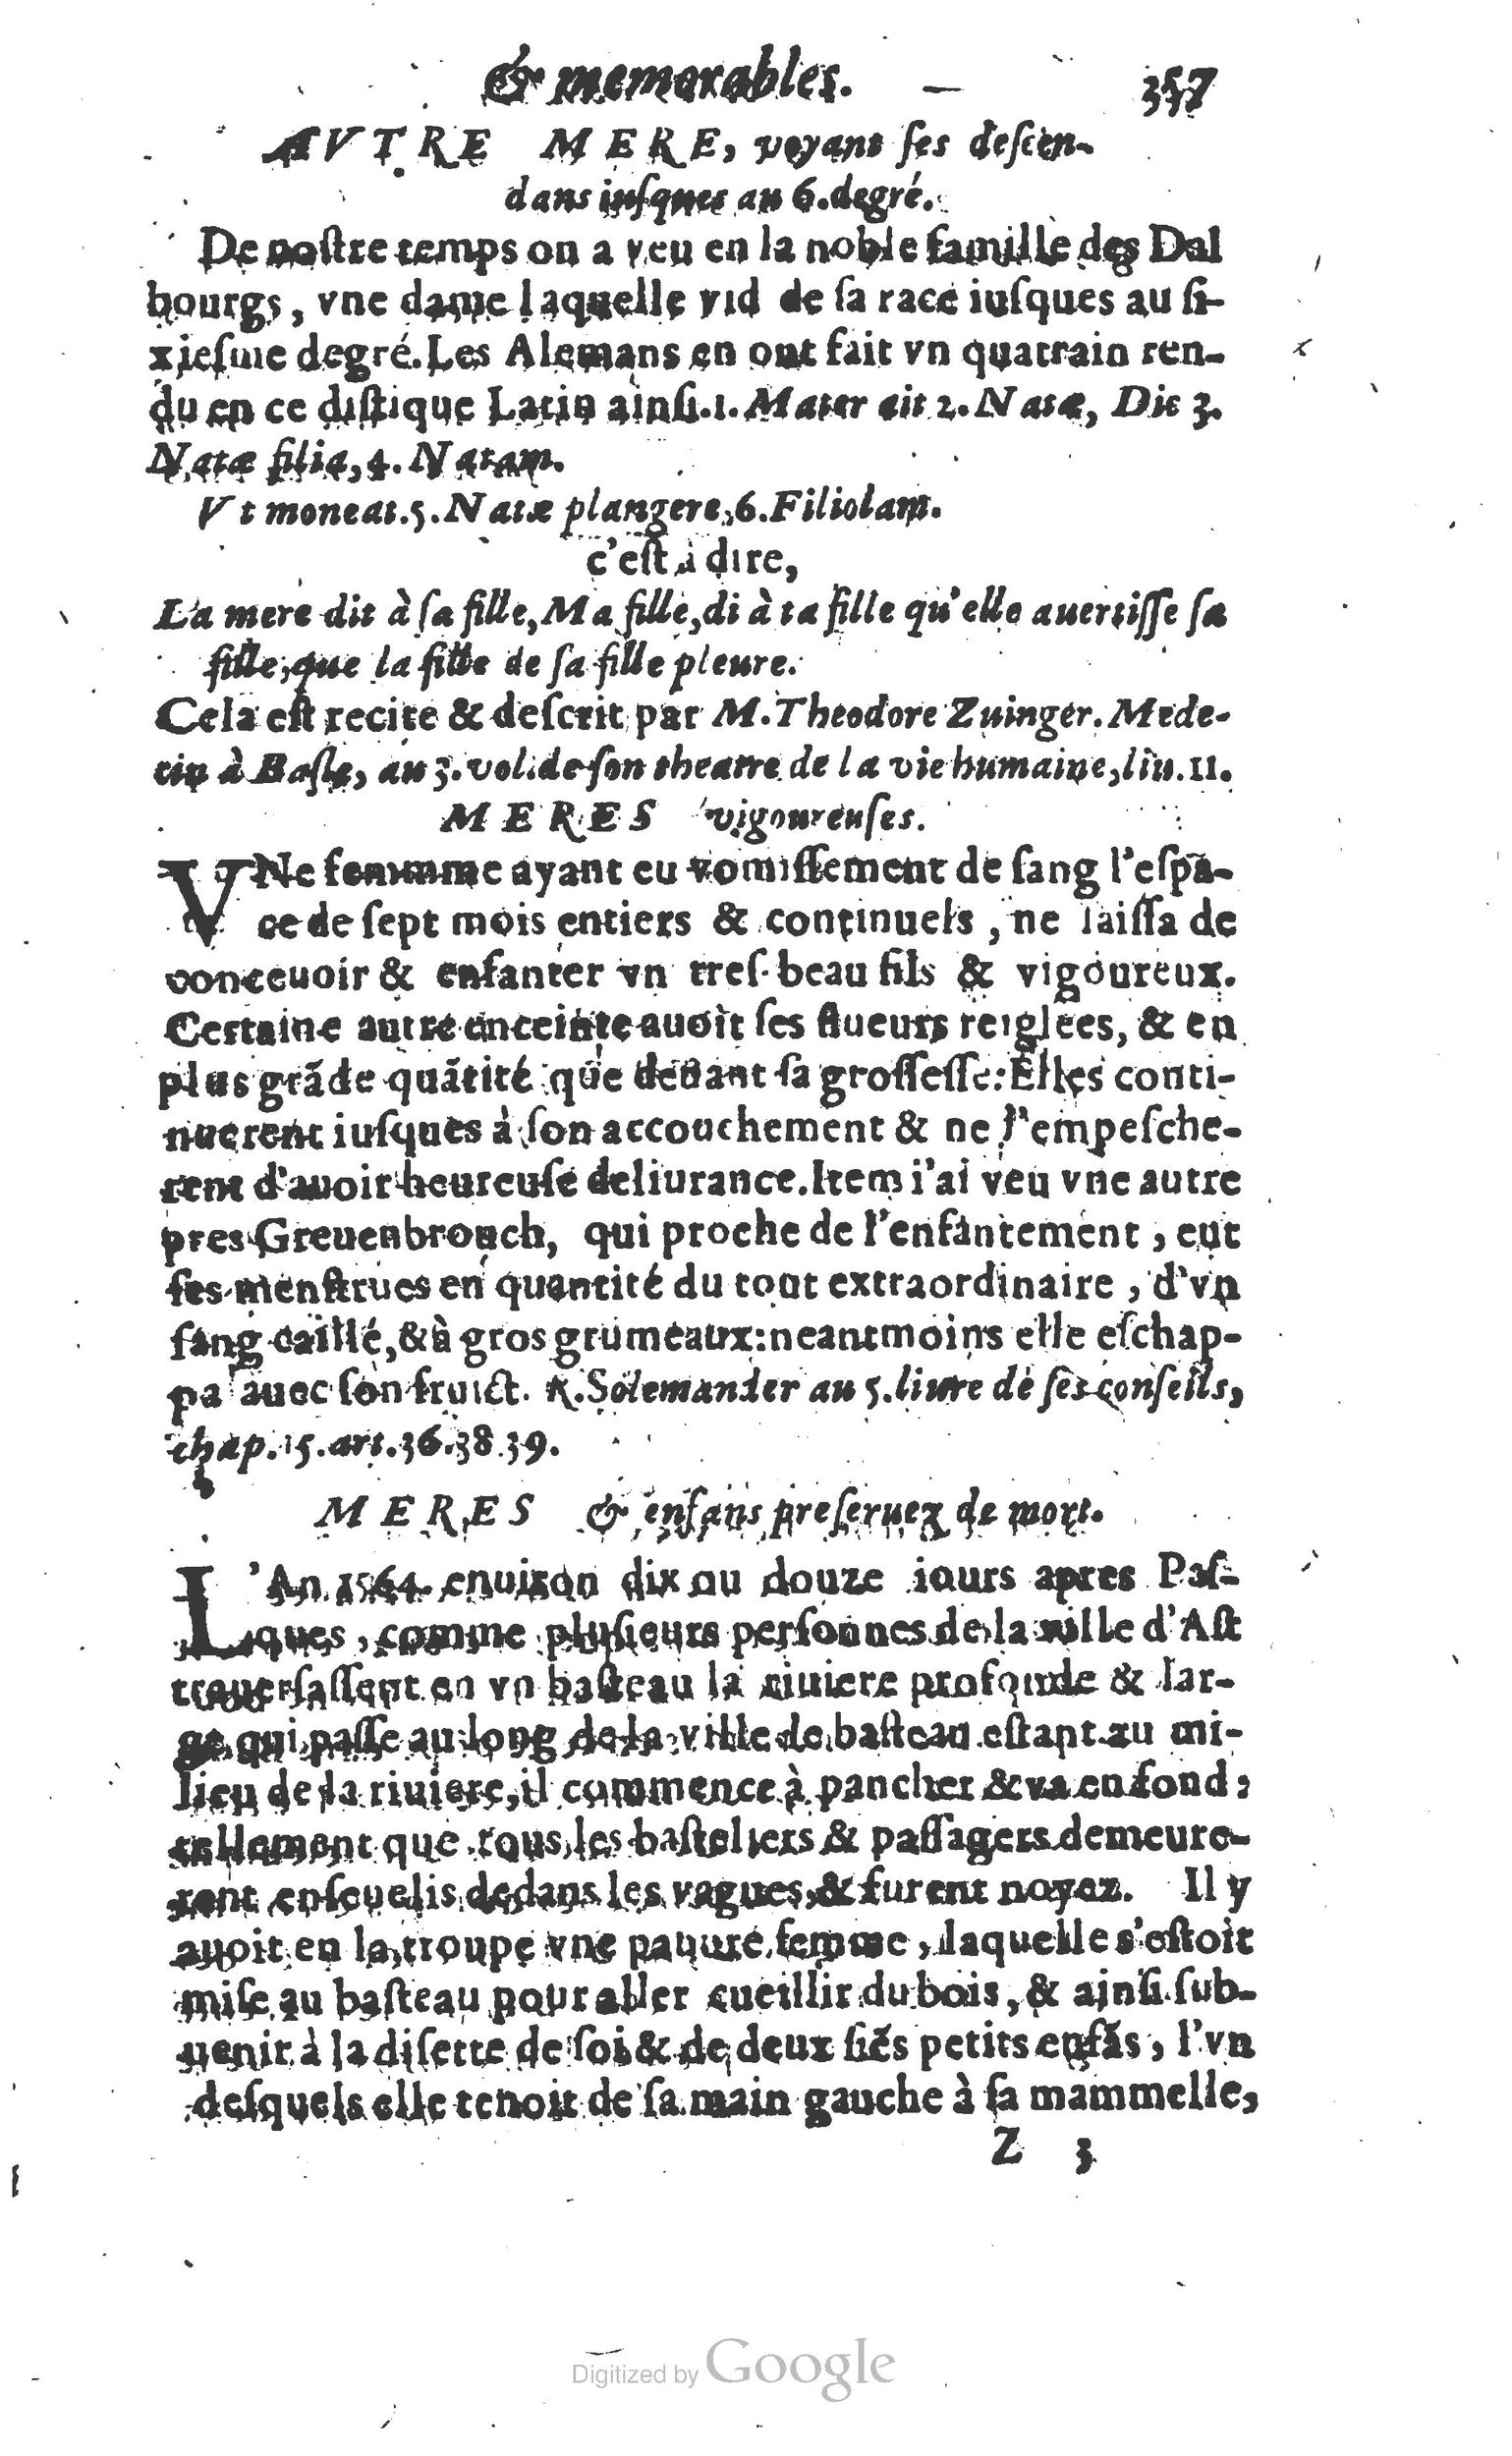 & memorables. 357
AVTRE MERE, voyant ſes deſcen-
dans iuſques au 6. degré.
De noſtre temps on a veu en la noble famille des Dal
bourgs, vne dame laquelle vid de ſa race iuſques au ſi-
xieſme degré. Les Alemans en ont fait vn quatrain ren-
du en ce diſtique Latin ainſi. 1. Mater ait 2. Natæ, Dic 3.
Natæ filia, 4. Natam.
Vt moneat. 5. Natæ plangere, 6. Filiolam.
c'eſt à dire,
La mere dit à ſa fille, Ma fille, di à ta fille qu'elle auertiſſe ſa
fille, que la fille de ſa fille pleure.
Cela eſt recité & deſcrit par M. Theodore Zuinger. Mede-
cin à Baſle, au 3. vol. de ſon theatre de la vie humaine, liu. 11.
MERES vigoureuſes.
VNe femmme ayant eu vomiſſement de ſang l'eſpa-
ce de ſept mois entiers & continuels, ne laiſſa de
conceuoir & enfanter vn treſ-beau fils & vigoureux.
Certaine autre enceinte auoit ſes flueurs reiglees, & en
plus grãde quãtité que deuant ſa groſſeſſe: Elles conti-
nuerent iuſques à ſon accouchement & ne l'empeſche-
rent d'auoir heureuſe deliurance. Item i'ai veu vne autre
pres Greuenbrouch, qui proche de l'enfantement, eut
ſes menſtrues en quantité du tout extraordinaire, d'vn
ſang caillé, & à gros grumeaux: neantmoins elle eſchap-
pa auec ſon fruict. R. Solemander au 5. liure de ſes conſeils,
chap. 15. art. 36. 38. 39.
MERES & enfans preſeruez de mort.
L'An 1564. enuiron dix ou douze iours apres Paſ-
ques, comme pluſieurs perſonnes de la ville d'Aſt
trauerſaſſent en vn baſteau la riuiere profonde & lar-
ge qui paſſe au long de la ville le baſteau eſtant au mi-
lieu de la riuiere, il commence à pancher & va en fond;
tellement que tous les baſteliers & paſſagers demeure-
rent enſeuelis dedans les vagues, & furent noyez. Il y
auoit en la troupe vne pauure femme, laquelle s'eſtoit
miſe au baſteau pour aller cueillir du bois, & ainſi ſub-
uenir à la diſette de ſoi & de deux ſiẽs petits enfãs, l'vn
deſquels elle tenoit de ſa main gauche à ſa mammelle,
Z 3
Digitized by Google